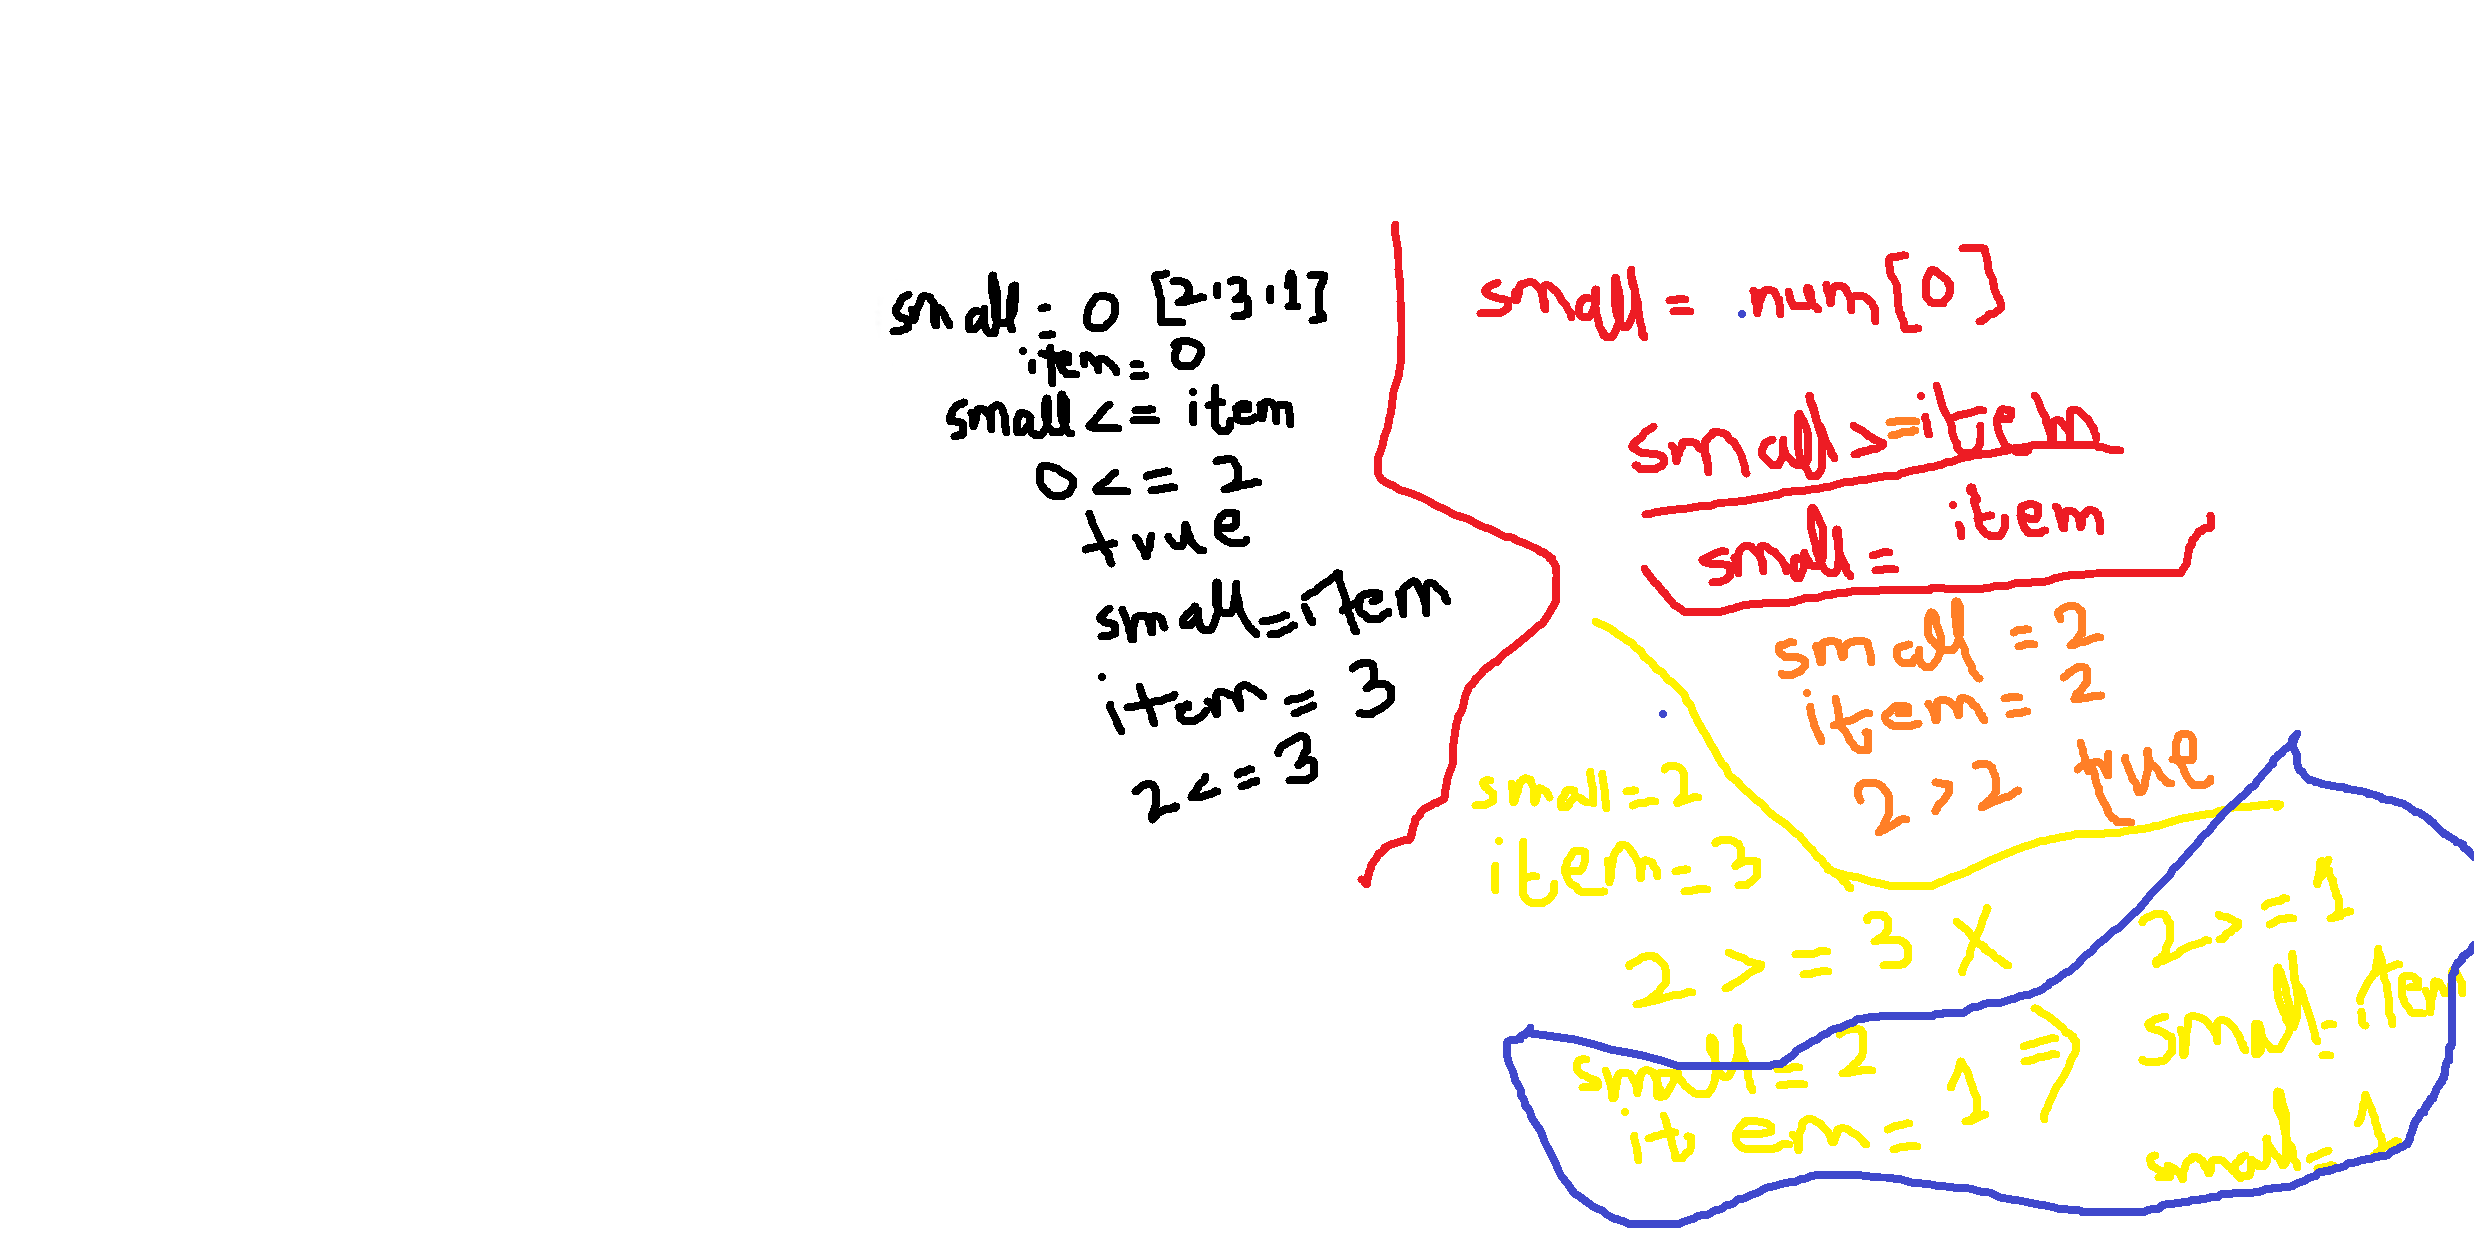 small = 0 [2,3,1]
item = 0
small <= item
0 <= 2
true
small = item
item = 3
2 <= 3
small = num[0]
small >= item
small = item
small = 2
item = 2
2 > 2 true
small = 2
item = 3
2 >= 3 X
small = 2
item = 1 =>
2 >= 1
small = item
small = 1